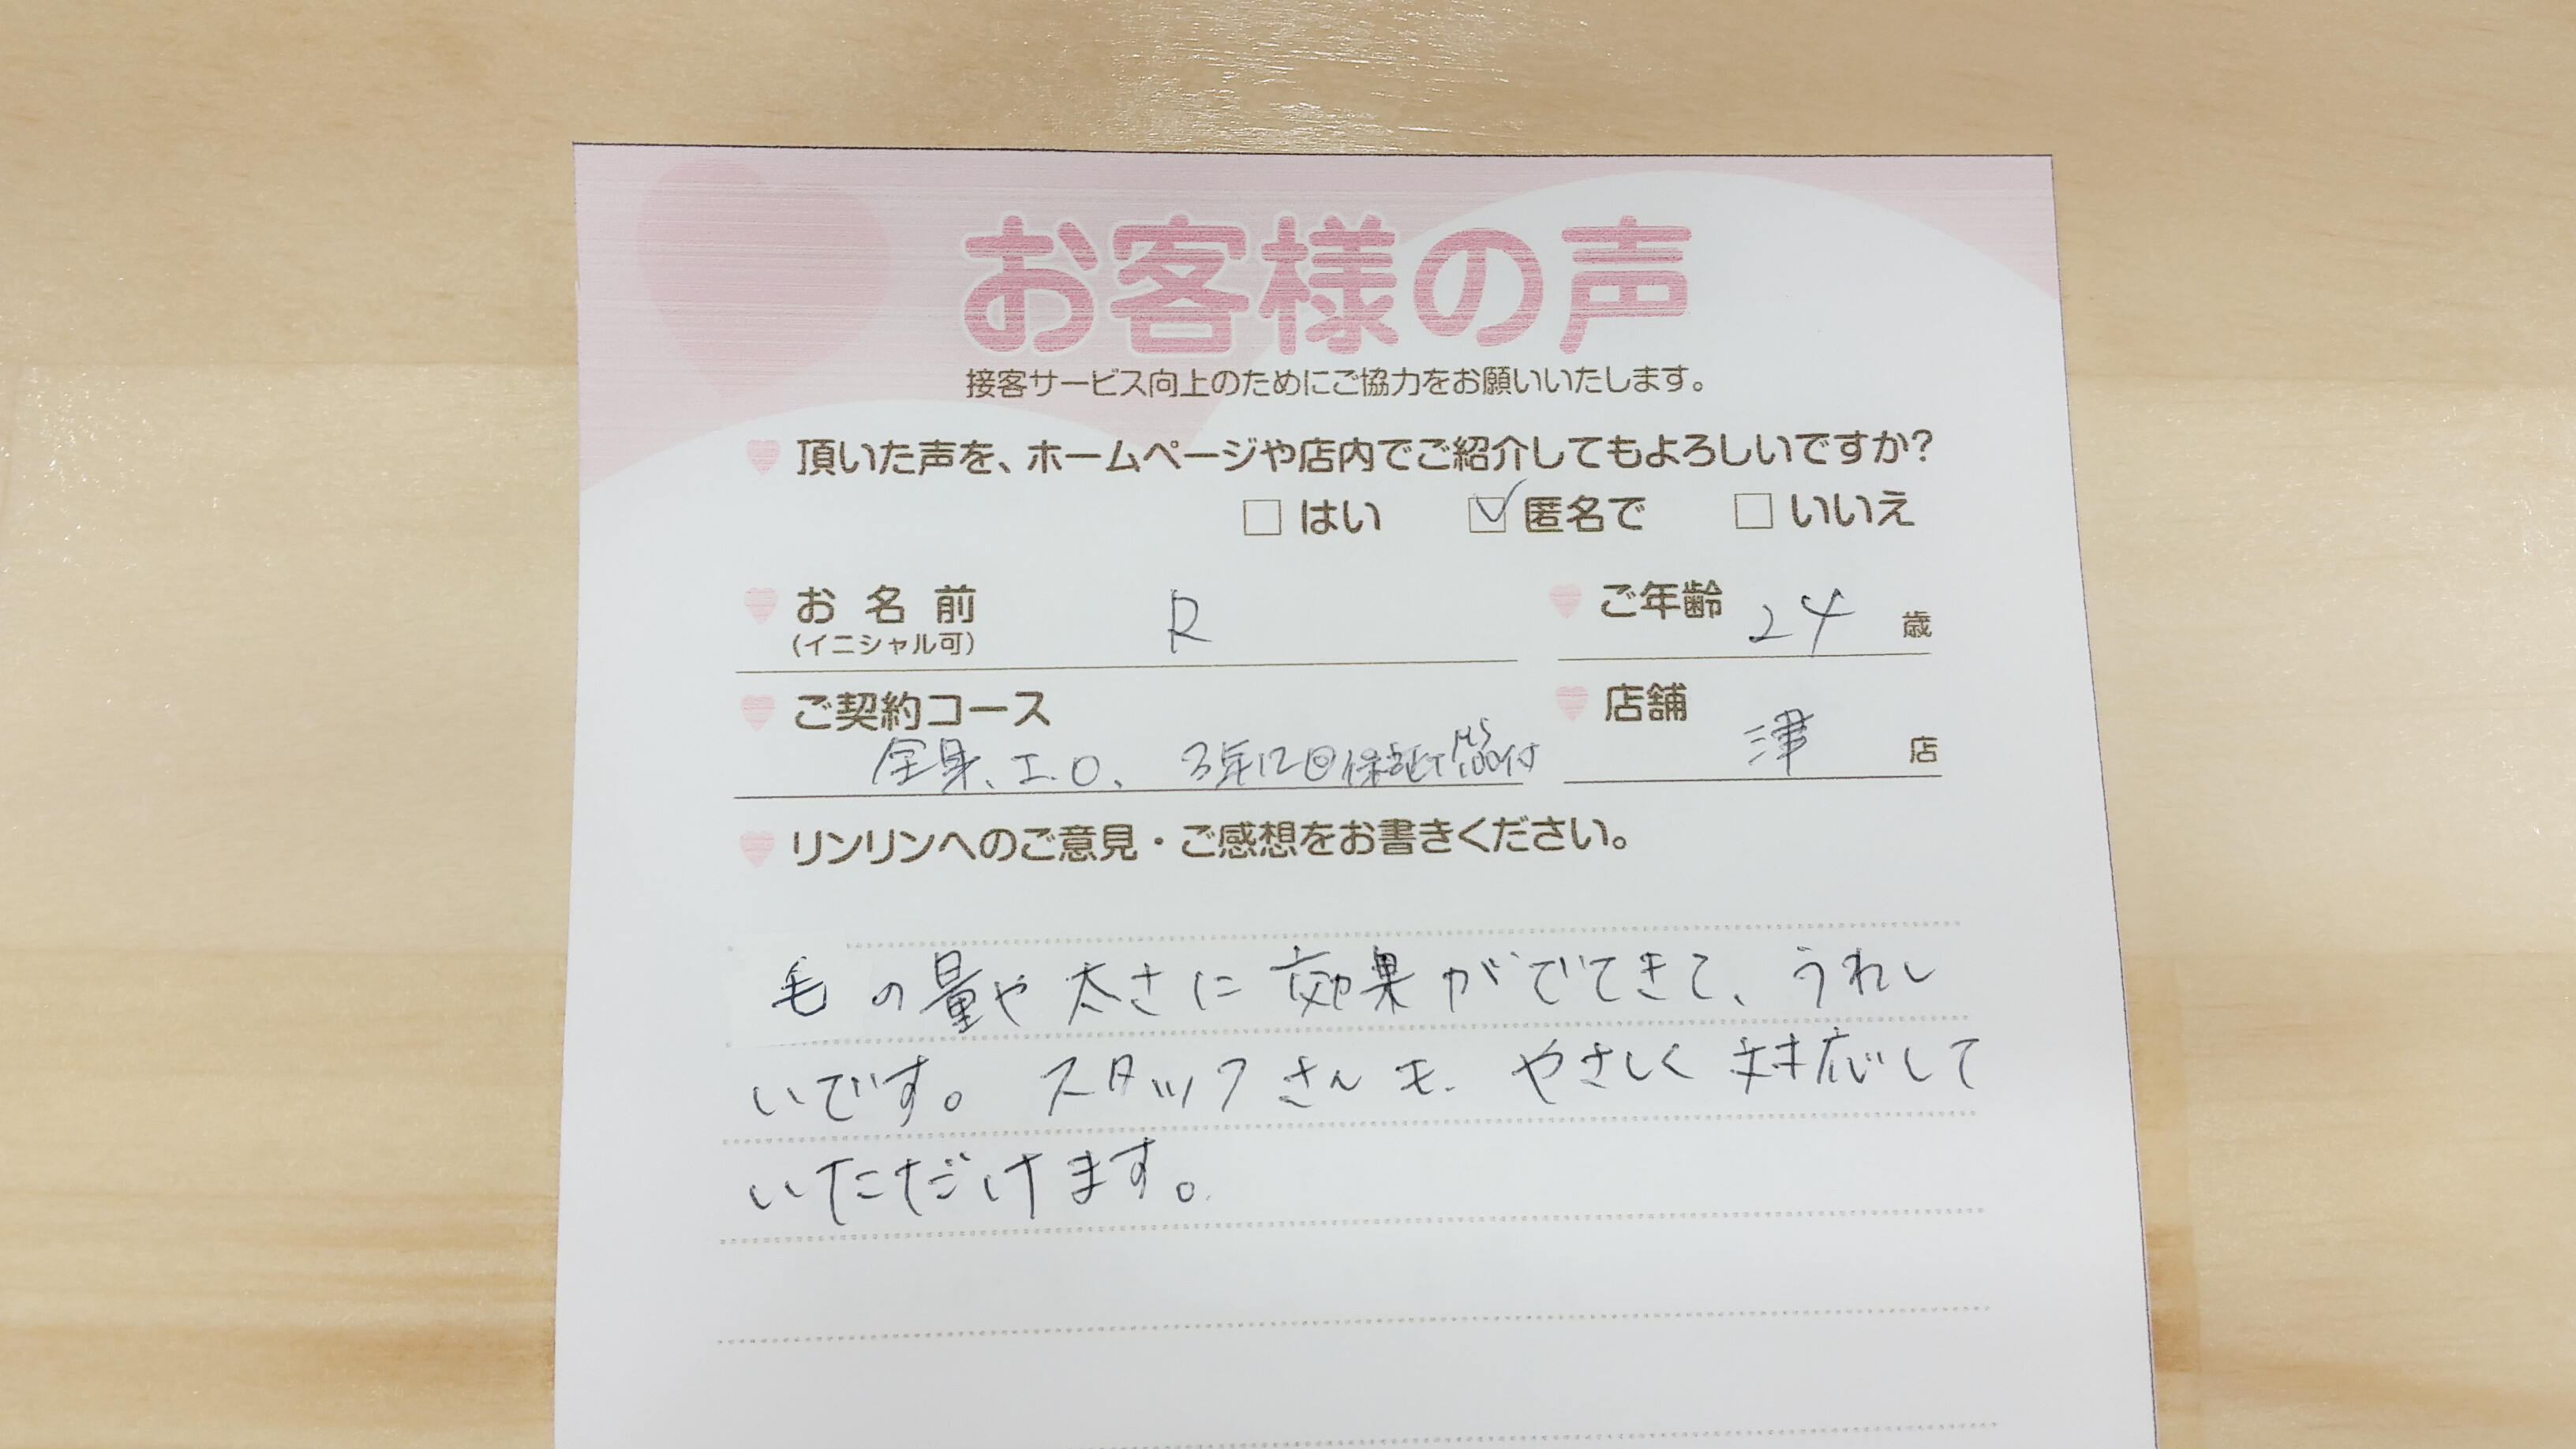 お客様の声
接客サービス向上のためにご協力をお願いいたします。
頂いた声を、ホームページや店内でご紹介してもよろしいですか?
はい 匿名で いいえ
お名前 R ご年齢 24 歳
(イニシャル可)
ご契約コース 店舗 津 店
全身、I.O、3年12回保証 付
リンリンへのご意見・ご感想をお書きください。
毛の量や太さに効果がでてきて、うれし
いです。スタッフさんも、やさしく対応して
いただけます。